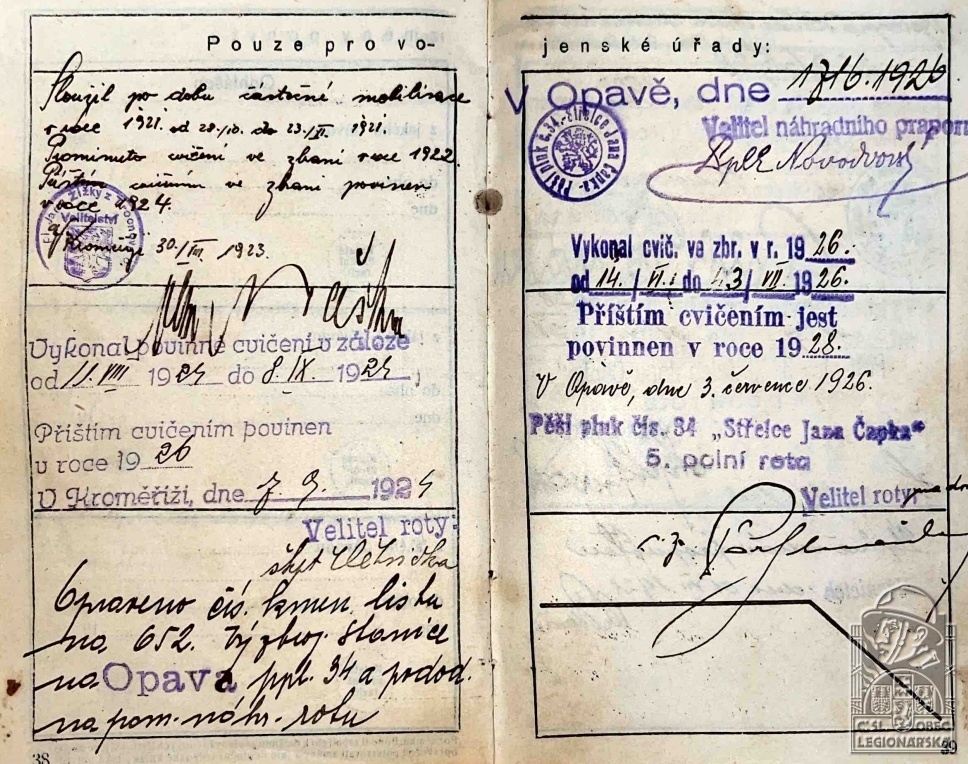 Pouze pro vo-
Sloužil po dobu částečné mobilisace
v roce 1921. od 28./10. do 23./XI. 1921.
Prominuto cvičení ve zbrani roce 1922.
Příštím cvičením ve zbrani povinen
v roce 1924.
Velitelství
Kroměříž 30./VIII. 1923.
Vykonal povinné cvičení v záloze
od 11. VIII 1924 do 8. IX. 1924
Příštím cvičením povinen
v roce 1926
V Kroměříži, dne 7 9. 1924
Velitel roty:
škpt
Opraveno čís. kmen. listu
na 652. Výzbroj. stanice
na Opava ppl. 34 a podod.
na pom. náhr. rotu
38
jenské úřady:
V Opavě, dne 17/6. 1926
Velitel náhradního praporu
Pěší pluk č. 34. Střelce Jana Čapka
Vykonal cvič. ve zbr. v r. 1926.
od 14./VI. do /VII. 1926.
Příštím cvičením jest
povinnen v roce 1928.
V Opavě, dne 3. července 1926.
Pěší pluk čís. 34 „Střelce Jana Čapka“
5. polní rota
Velitel roty:
v. z.
ČSL. OBEC
LEGIONÁŘSKÁ
39